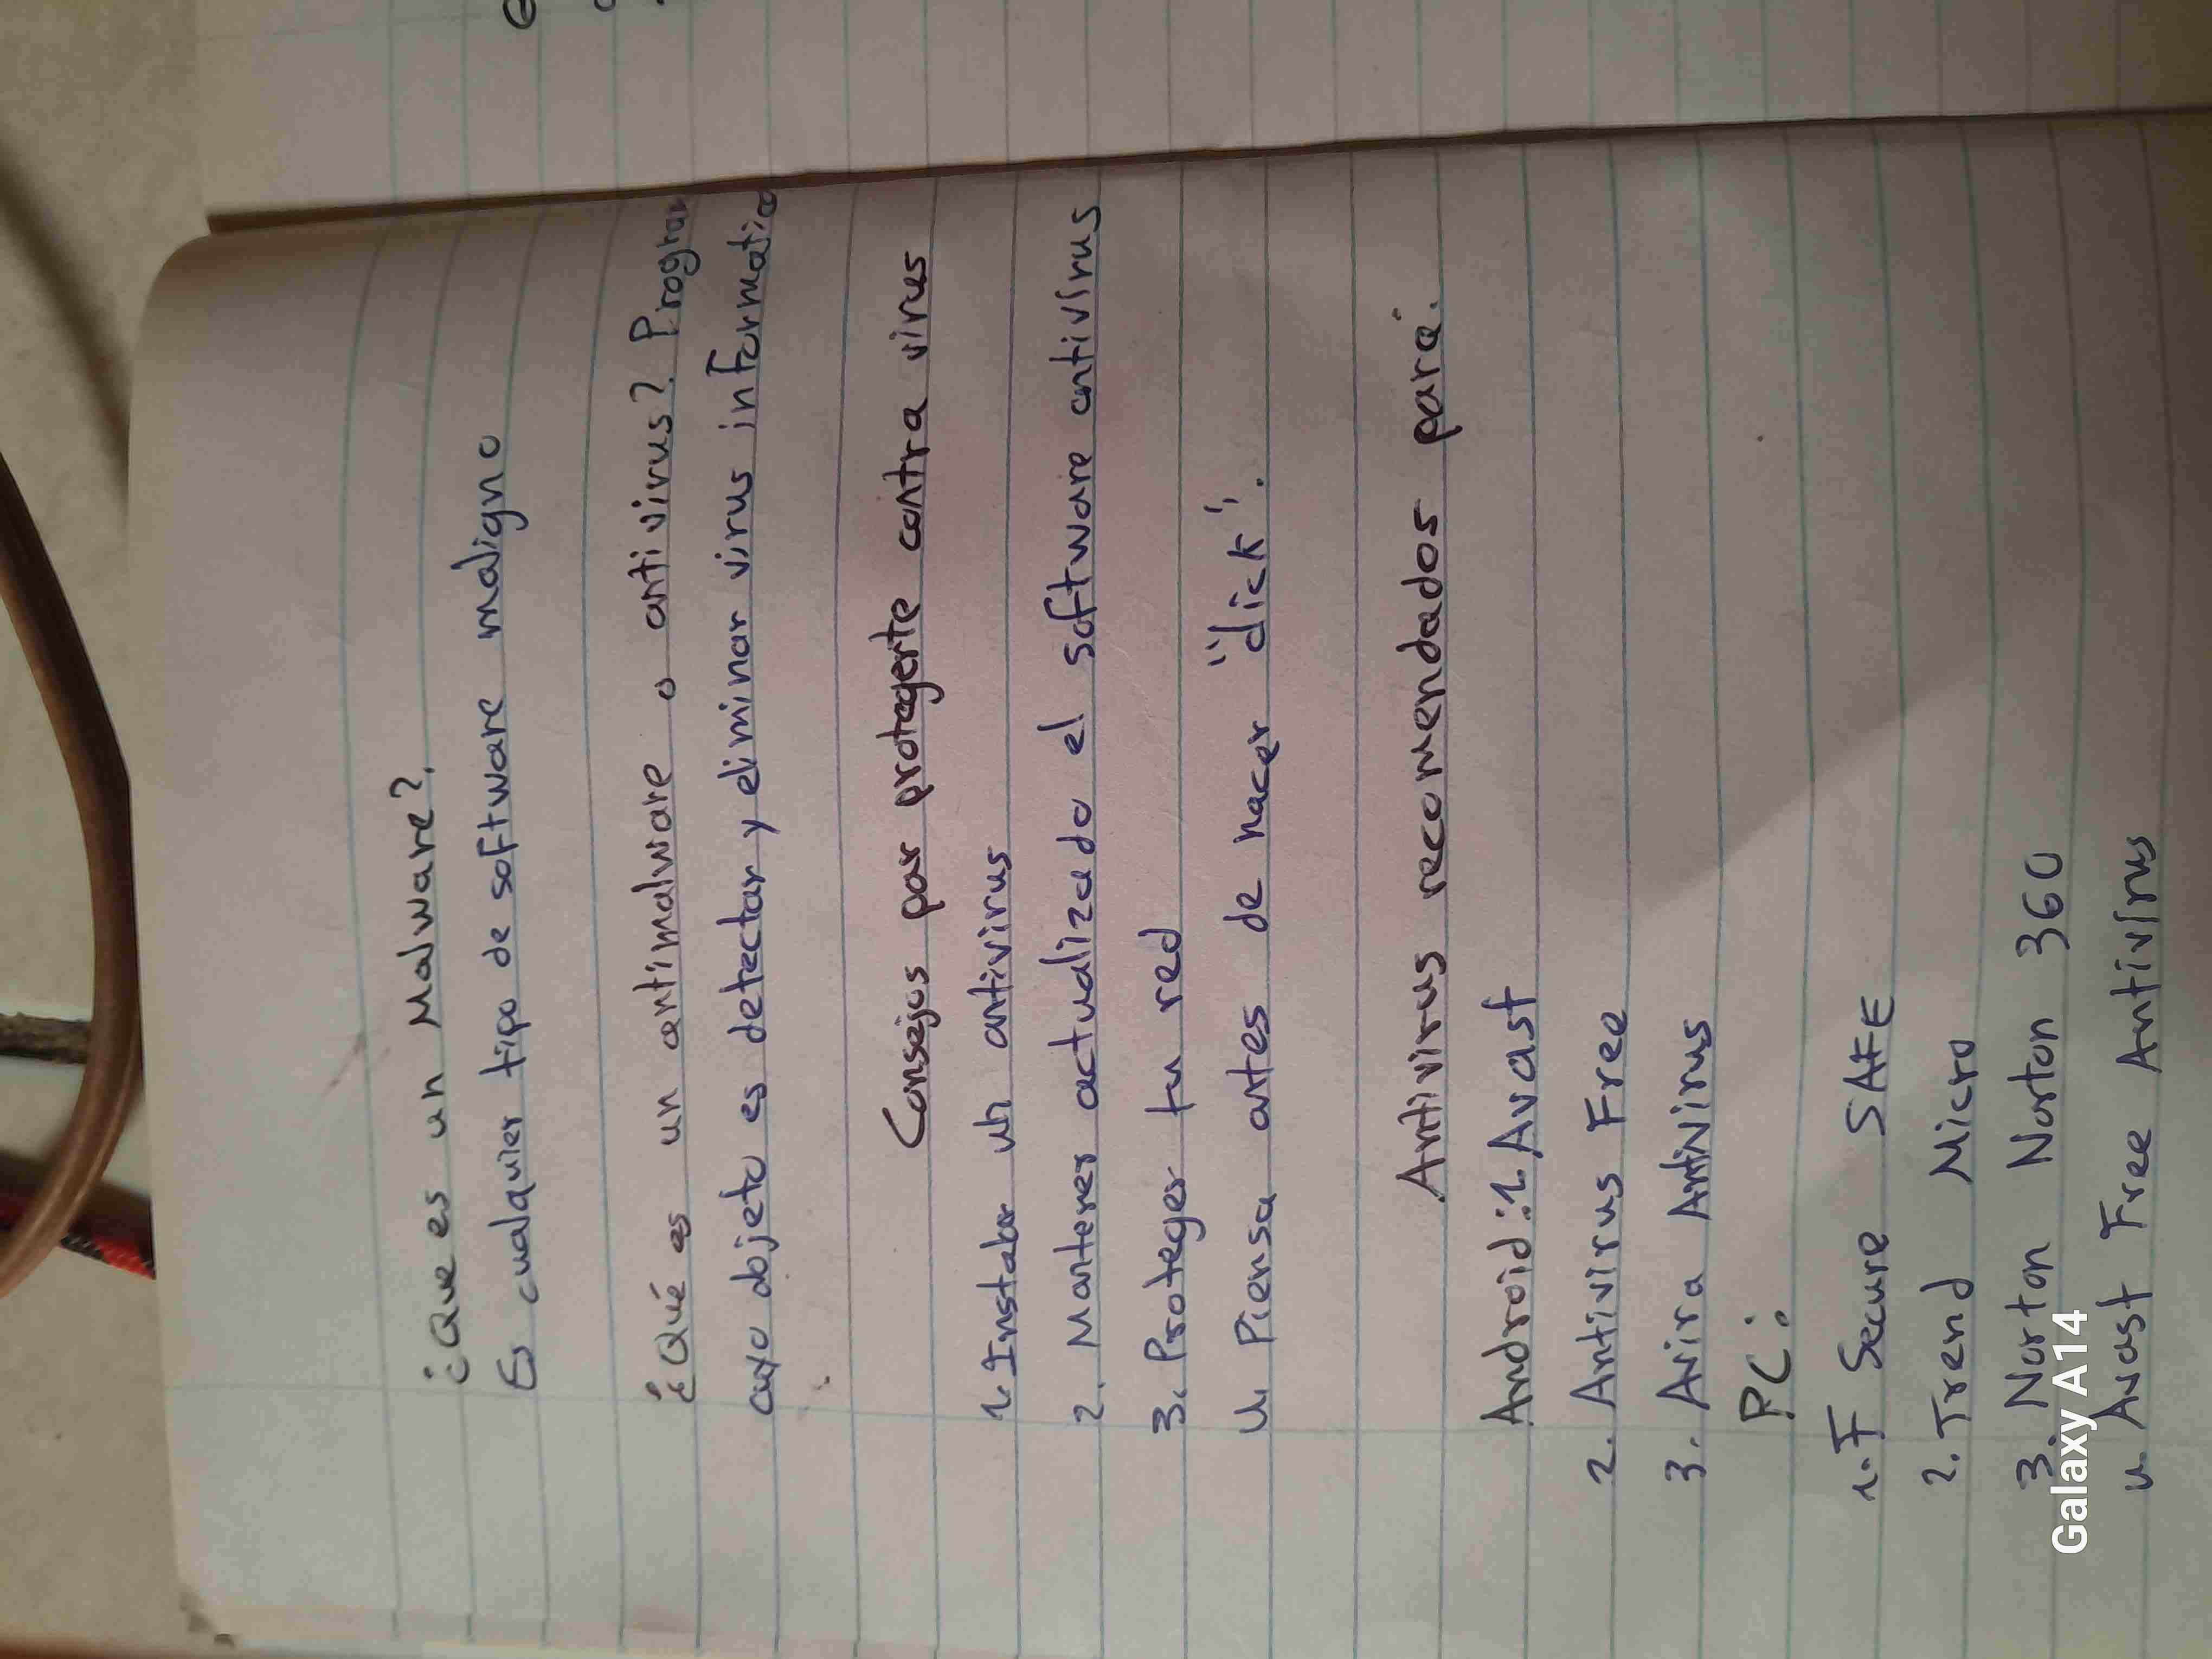 ¿Que es un Malware?.
Es cualquier tipo de software maligno
¿Qué es un antimalware o antivirus? Program
cuyo objeto es detectar y eliminar virus informatico
Consejos par protegerte contra virus
1. Instalar un antivirus
2. Mantener actualizado el software antivirus
3. Proteger tu red
4. Piensa antes de hacer "click".
Antivirus recomendados para:
Android: 1. Avast
2. Antivirus Free
3. Avira Antivirus
PC:
1. F Secure SAFE
2. Trend Micro
3. Norton Norton 360
4. Avast Free Antivirus
Galaxy A14